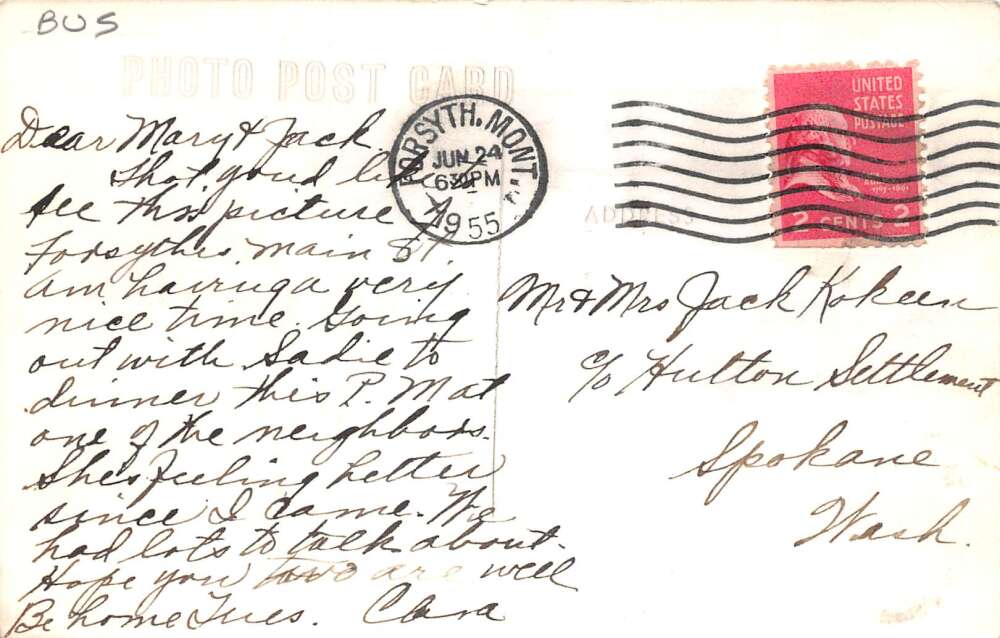 BUS
PHOTO POST CARD
Dear Mary & Jack.
Thot you'd like
see this picture
Forsythes. Main St.
Am having a very
nice time. Going
out with Sadie to
dinner this P. M at
one of the neighbors.
She's feeling better
since I came. We
had lots to talk about.
Hope you two are well
Be home Tues. Clara
FORSYTH. MONT.
JUN 24
630PM
1955
UNITED
STATES
POSTAGE
2 CENTS 2
ADDRESS
Mr & Mrs Jack Kokeen
c/o Hutton Settlement
Spokane
Wash.